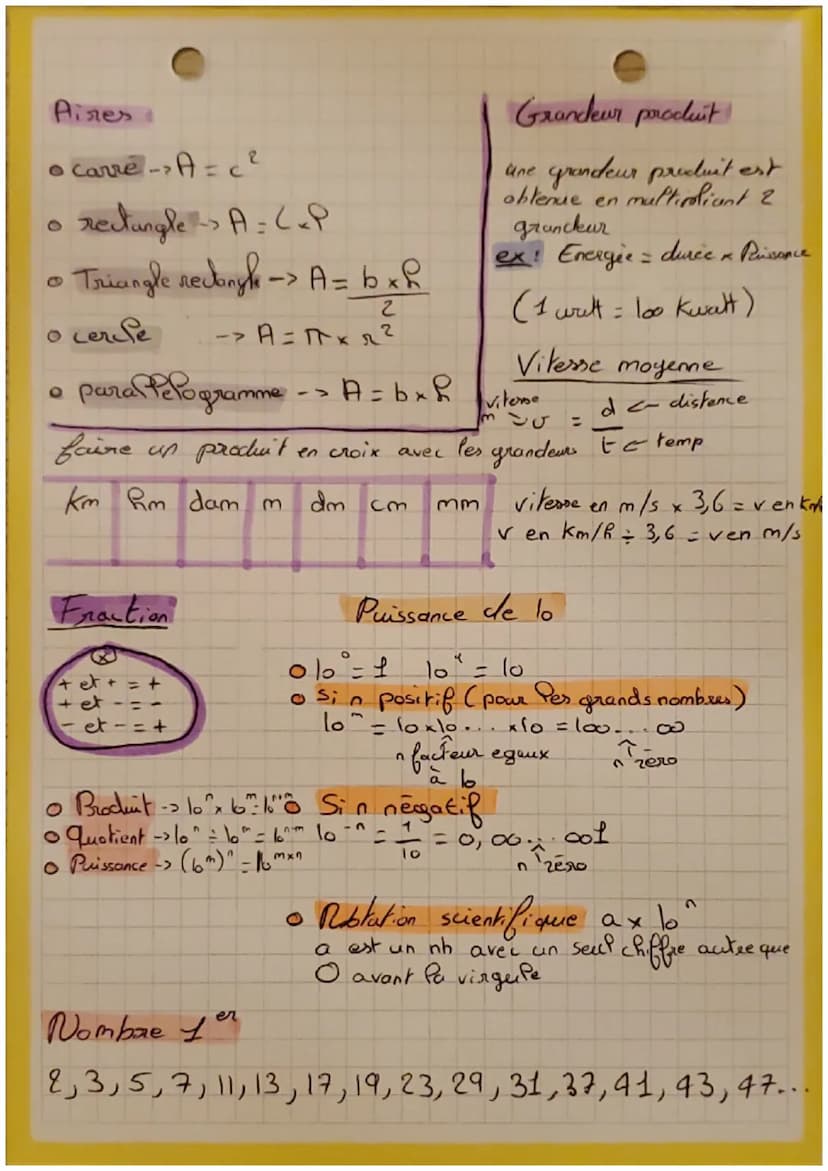 Aires
carré -> A = c²
rectangle -> A = L x l
Triangle rectangle -> A = b x h / 2
cercle -> A = π x r²
parallélogramme -> A = b x h
Grandeur produit
une grandeur produit est
obtenue en multipliant 2
grandeur
ex : Energie = durée x Puissance
(1 watt = 100 Kwatt)
Vitesse moyenne
vitesse m -> v = d <- distance
t <- temp
faire un produit en croix avec les grandeurs
km hm dam m dm cm mm
vitesse en m/s x 3,6 = v en km/h
v en km/h ÷ 3,6 = v en m/s
Fraction
(x)
+ et + = +
+ et - = -
- et - = +
Produit -> 10ⁿ x 10ᵐ = 10ⁿ⁺ᵐ
Quotient -> 10ⁿ ÷ 10ᵐ = 10ⁿ⁻ᵐ
Puissance -> (10ᵐ)ⁿ = 10ᵐˣⁿ
Puissance de 10
10⁰ = 1 10¹ = 10
Si n positif (pour les grands nombres)
10ⁿ = 10x10... x10 = 100... 00
n facteur egaux
à 10
n zéro
Si n négatif
10⁻ⁿ = 1/10 = 0,00... 001
n zéro
Notation scientifique a x 10ⁿ
a est un nb avec un seul chiffre autre que
0 avant la virgule
Nombre 1er
2, 3, 5, 7, 11, 13, 17, 19, 23, 29, 31, 37, 41, 43, 47...